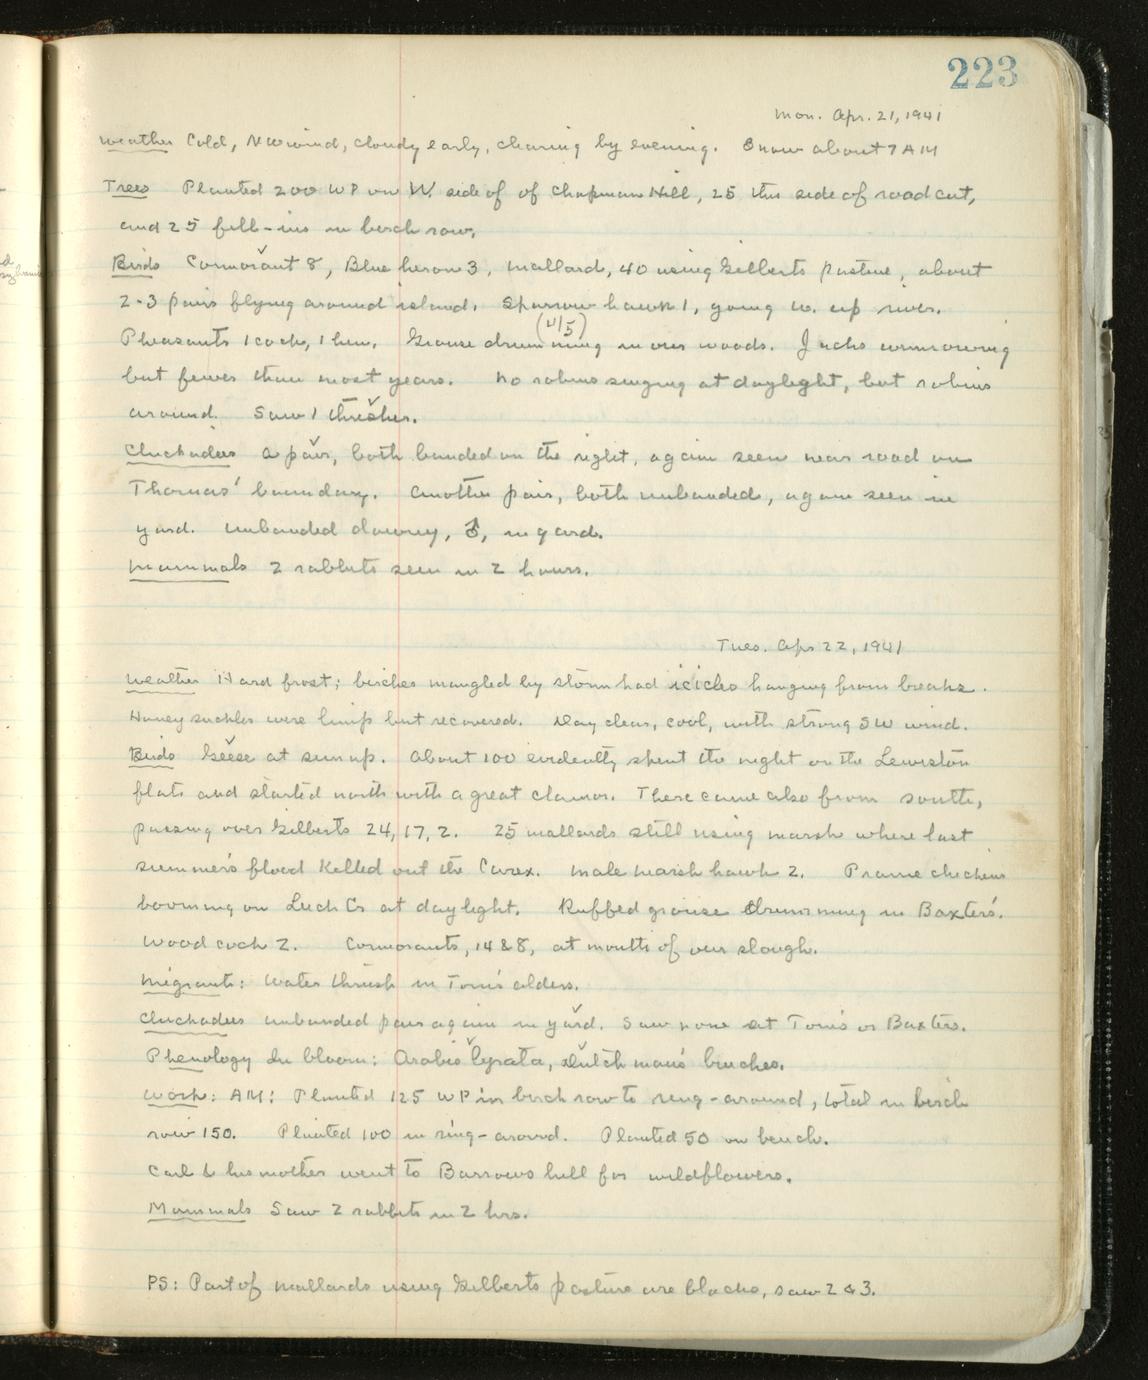 223
Mon. Apr. 21, 1941
Weather Cold, NW wind, cloudy early, clearing by evening. Snow about 7 AM
Trees Planted 200 WP on W. side of of Chapman Hill, 25 this side of road cut,
and 25 fill-ins in birch row.
Birds Cormorant 8, Blue heron 3, Mallard, 40 using Gilberts pasture, about
2-3 pairs flying around island. Sparrow hawk 1, going W. up river.
(4/5)
Pheasants 1 cock, 1 hen. Grouse drumming in our woods. Juncos winnowing
but fewer than most years. No robins singing at daylight, but robins
around. Saw 1 thrasher.
Chickadees A pair, both banded on the right, again seen near road on
Thomas' boundary. Another pair, both unbanded, again seen in
yard. Unbanded downy, ♂, in yard.
Mammals 2 rabbits seen in 2 hours.
Tues. Apr 22, 1941
Weather Hard frost; birches mangled by storm had icicles hanging from breaks.
Honeysuckles were limp but recovered. Day clear, cool, with strong SW wind.
Birds Geese at sunup. About 100 evidently spent the night on the Lewiston
flats and started north with a great clamor. There came also from south,
passing over Gilberts 24, 17, 2. 25 mallards still using marsh where last
summer's flood killed out the Carex. Male marsh hawk 2. Prairie chickens
booming on Leech Cr at daylight. Ruffed grouse drumming in Baxters'.
Woodcock 2. Cormorants, 14 & 8, at mouth of our slough.
Migrants: Water thrush in Tom's alders.
Chickadees unbanded pair again in yard. Saw none at Tom's or Baxters.
Phenology In bloom: Arabis lyrata, dutchman's breeches.
Work: AM: Planted 125 WP in birch row to ring-around, total in birch
row 150. Planted 100 in ring-around. Planted 50 on bench.
Carl & his mother went to Barrows hill for wildflowers.
Mammals Saw 2 rabbits in 2 hrs.
PS: Part of mallards using Gilberts pasture are blacks, saw 2 & 3.